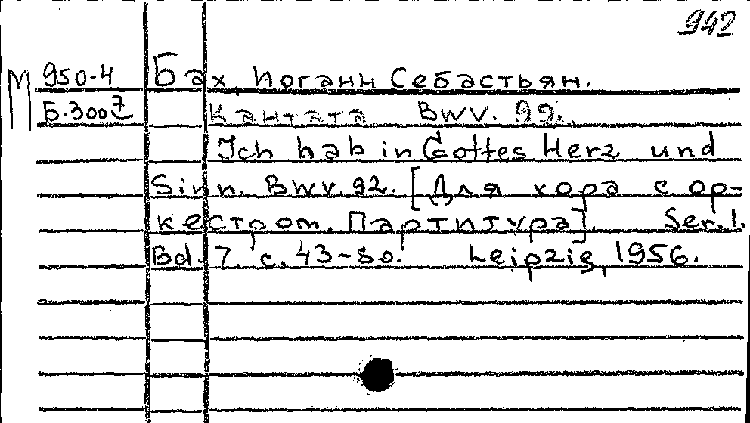 942
М 950-4 Бах, Иоганн Себастьян.
Б.3007 Кантата BWV. 92.
Ich hab in Gottes Herz und
Sinn. BWV. 92. [Для хора с ор-
кестром. Партитура]. Ser. I.
Bd. 7 с. 43-80. Leipzig, 1956.